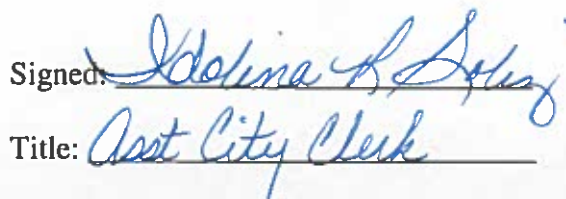 Signed: Idolina R. Solis
Title: Asst City Clerk